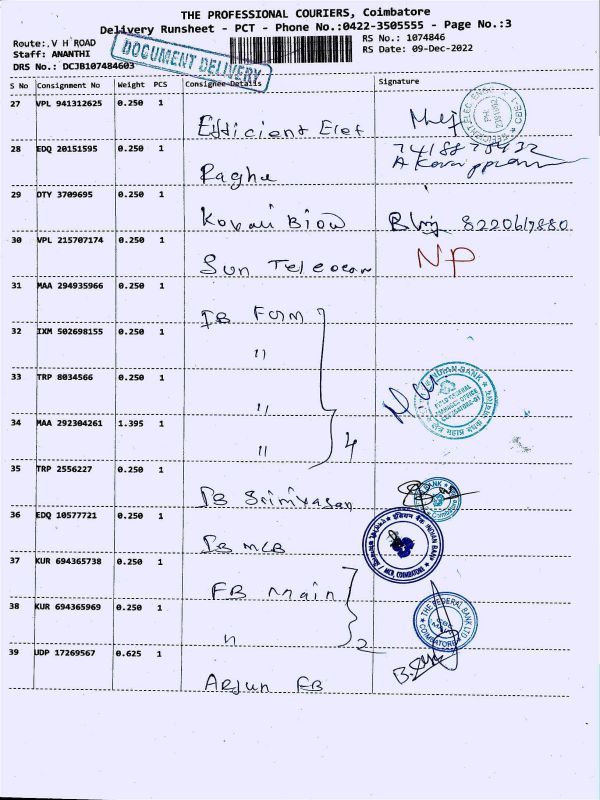 THE PROFESSIONAL COURIERS, Coimbatore
Delivery Runsheet - PCT - Phone No.:0422-3505555 - Page No.:3
Route:.V H ROAD
RS No.: 1074846
Staff: ANANTHI
RS Date: 09-Dec-2022
DRS No.: DCJB107484603
DOCUMENT DELIVERY
S No Consignment No Weight PCS Consignee Details Signature
27 VPL 941312625 0.250 1
Efficient Elet
28 EDQ 20151595 0.250 1
Raghu
29 DTY 3709695 0.250 1
Kovai
30 VPL 215707174 0.250 1
Sun Telecom NP
31 MAA 294935966 0.250 1
IB Form
32 IXM 502698155 0.250 1
"
33 TRP 8034566 0.250 1
"
INDIAN BANK
34 MAA 292304261 1.395 1
" 4
35 TRP 2556227 0.250 1
IB Srinivasan
36 EDQ 10577721 0.250 1
IB MCB
INDIAN BANK
MCB, COIMBATORE
37 KUR 694365738 0.250 1
FB Main
38 KUR 694365969 0.250 1
" 2
THE FEDERAL BANK LTD
COIMBATORE
39 UDP 17269567 0.625 1
Arjun FB